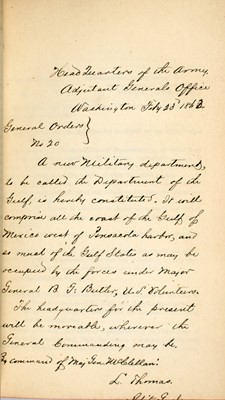 HeadQuarters of the Army,
Adjutant Generals Office
Washington Feby 23d 1862.
General Orders }
No 20
A new Military department,
to be called the Department of the
Gulf, is hereby constituted. It will
comprise all the coast of the Gulf of
Mexico west of Pensacola harbor, and
so much of the Gulf States as may be
occupied by the forces under Major
General B. F. Butler, U.S. Volunteers.
The headquarters for the present
will be moveable, wherever the
General Commanding may be.
By command of Maj. Gen. McClellan:
L. Thomas.
Adjt. Genl.